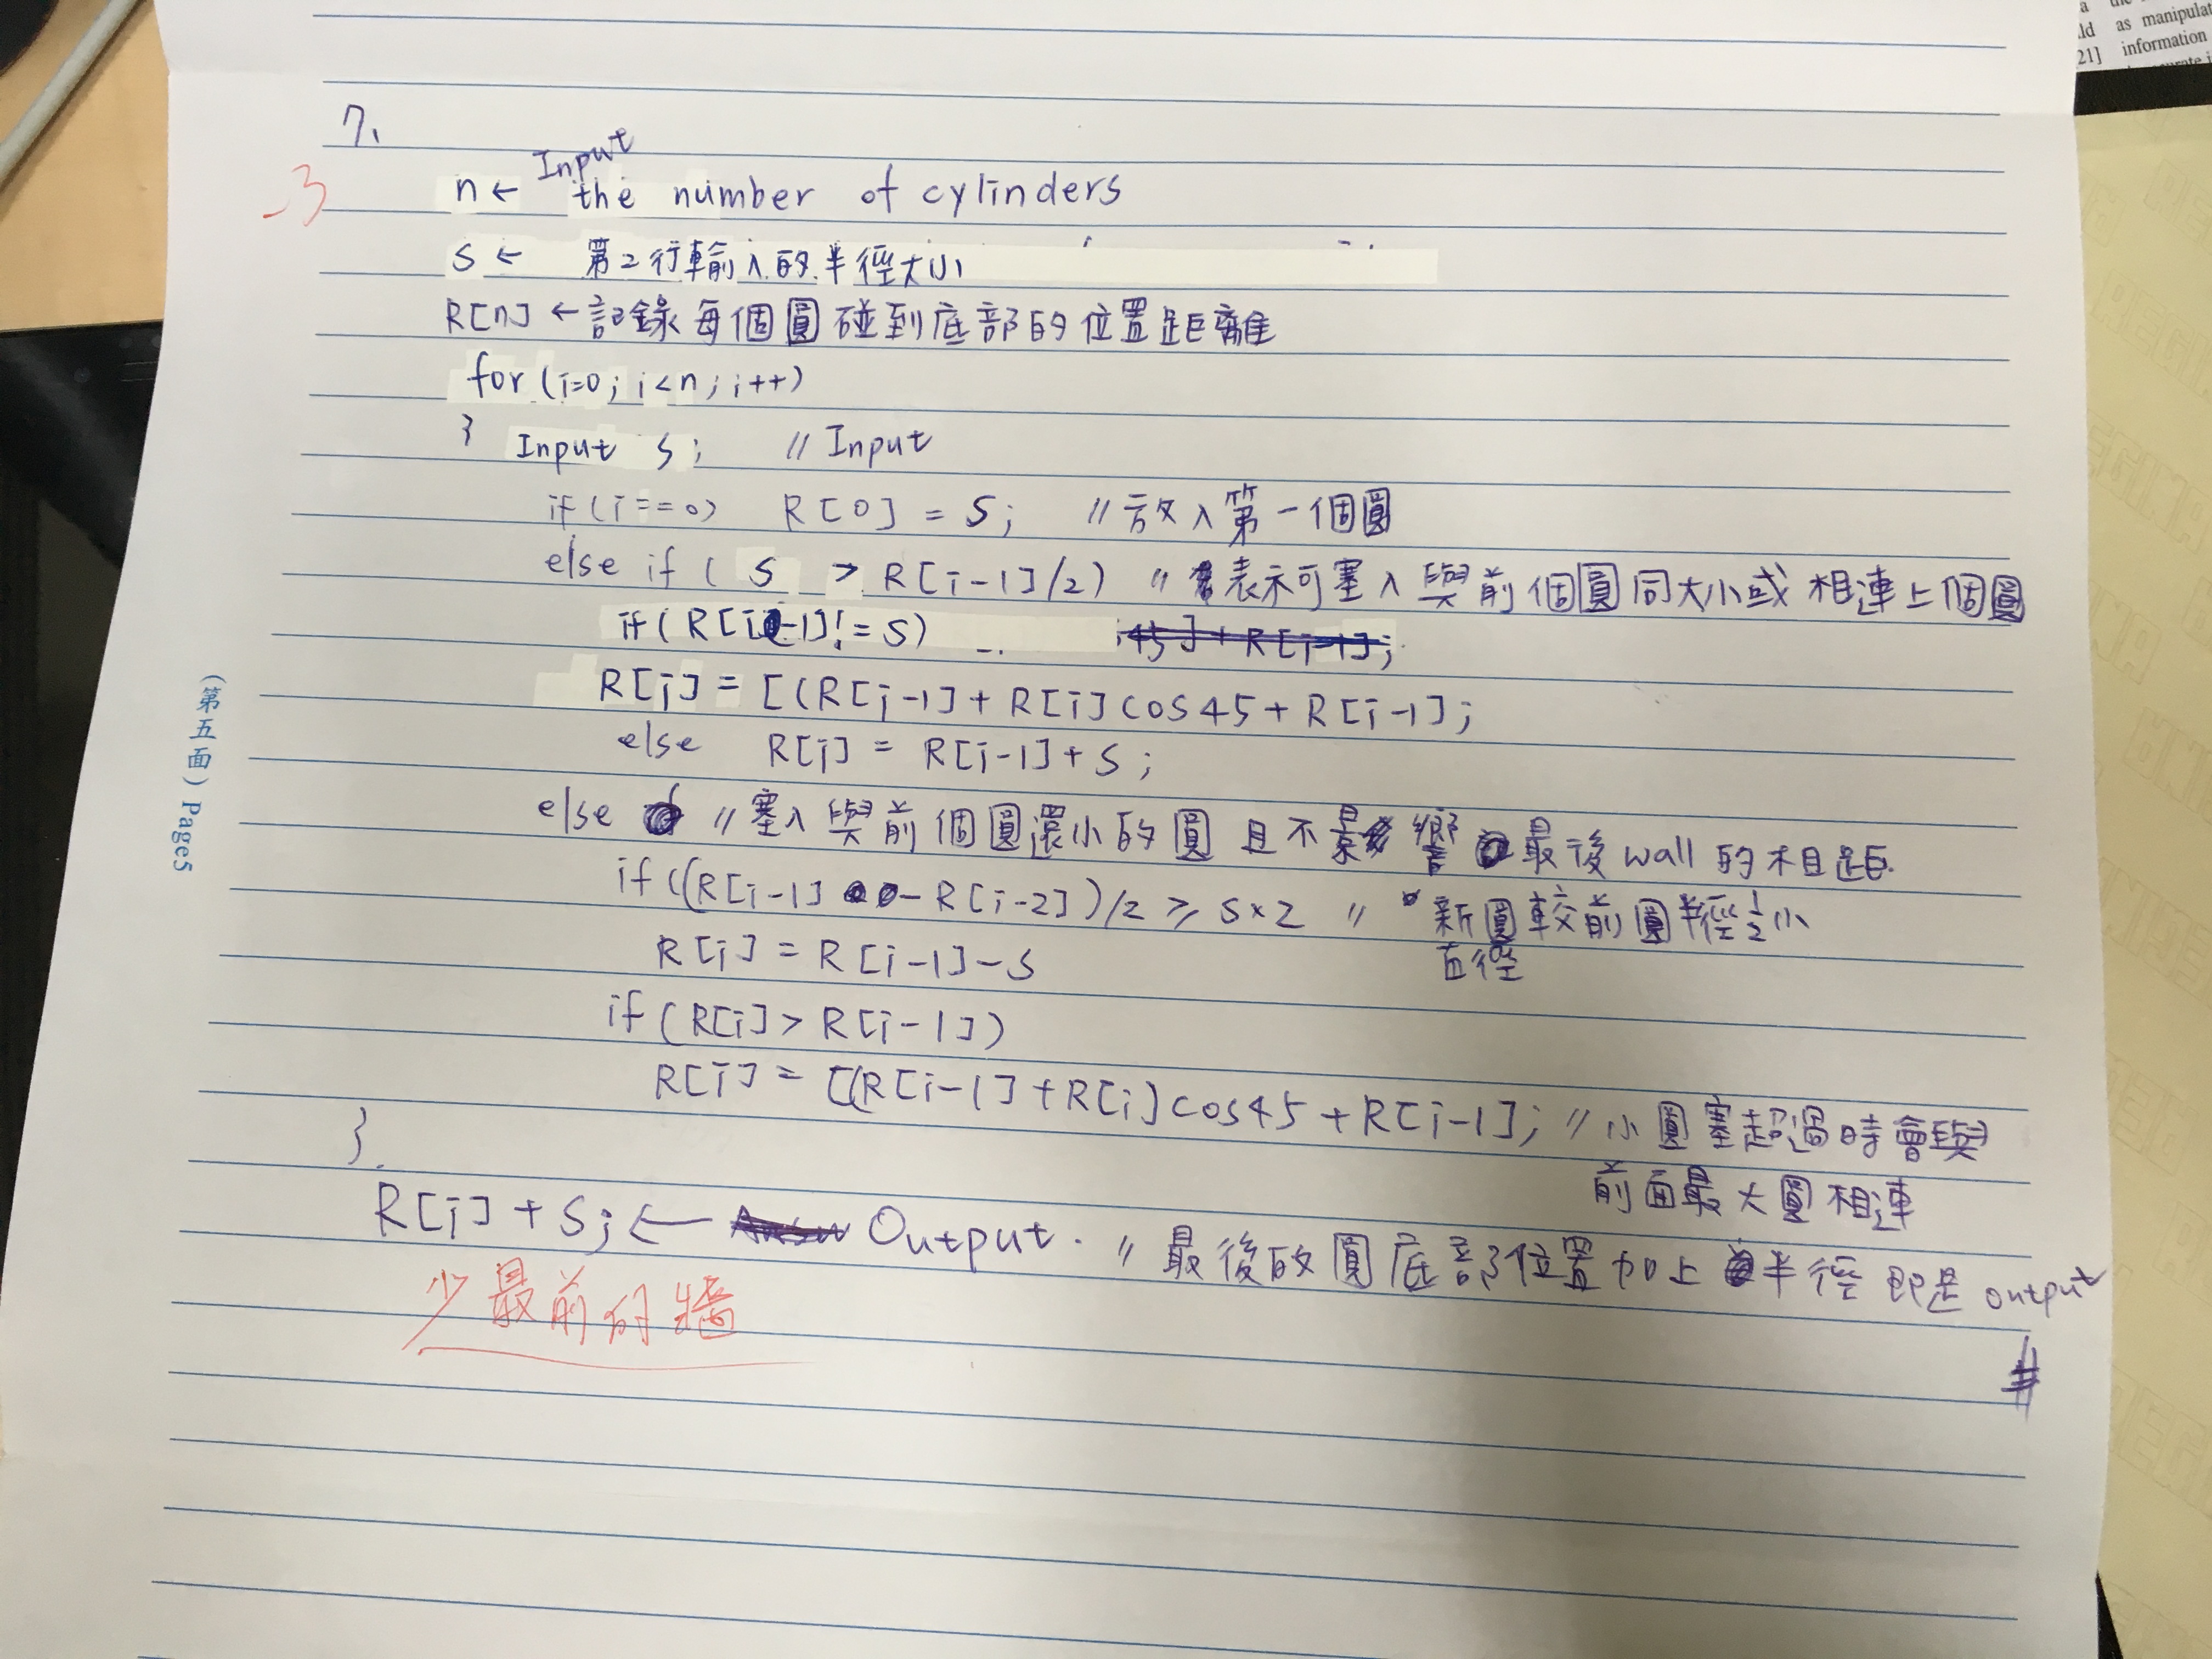 as manipulat
ld
information
21]
7.
-3
Input
n ← the number of cylinders
S ← 第2行輸入的半徑大小
R[n] ← 記錄每個圓碰到底部的位置距離
for (i=0; i<n; i++)
{ Input S; // Input
if (i==0) R[0] = S; // 放入第一個圓
else if ( S > R[i-1]/2) // 表示可塞入與前個圓同大小或相連上個圓
if (R[i-1] != S)
R[i] = [(R[i-1] + R[i] cos 45 + R[i-1];
else R[i] = R[i-1] + S;
else // 塞入與前個圓還小的圓 且不影響 最後 wall 的相距.
if ((R[i-1] - R[i-2])/2 ≥ S×2 // 新圓較前圓半徑½小
直徑
R[i] = R[i-1] - S
if (R[i] > R[i-1])
R[i] = [(R[i-1] + R[i] cos 45 + R[i-1]; // 小圓塞超過時會與
前面最大圓相連
}.
R[i] + S; ← Output. // 最後的圓底部位置加上半徑 即是 output
#
少最前的牆
(第五面) Page5